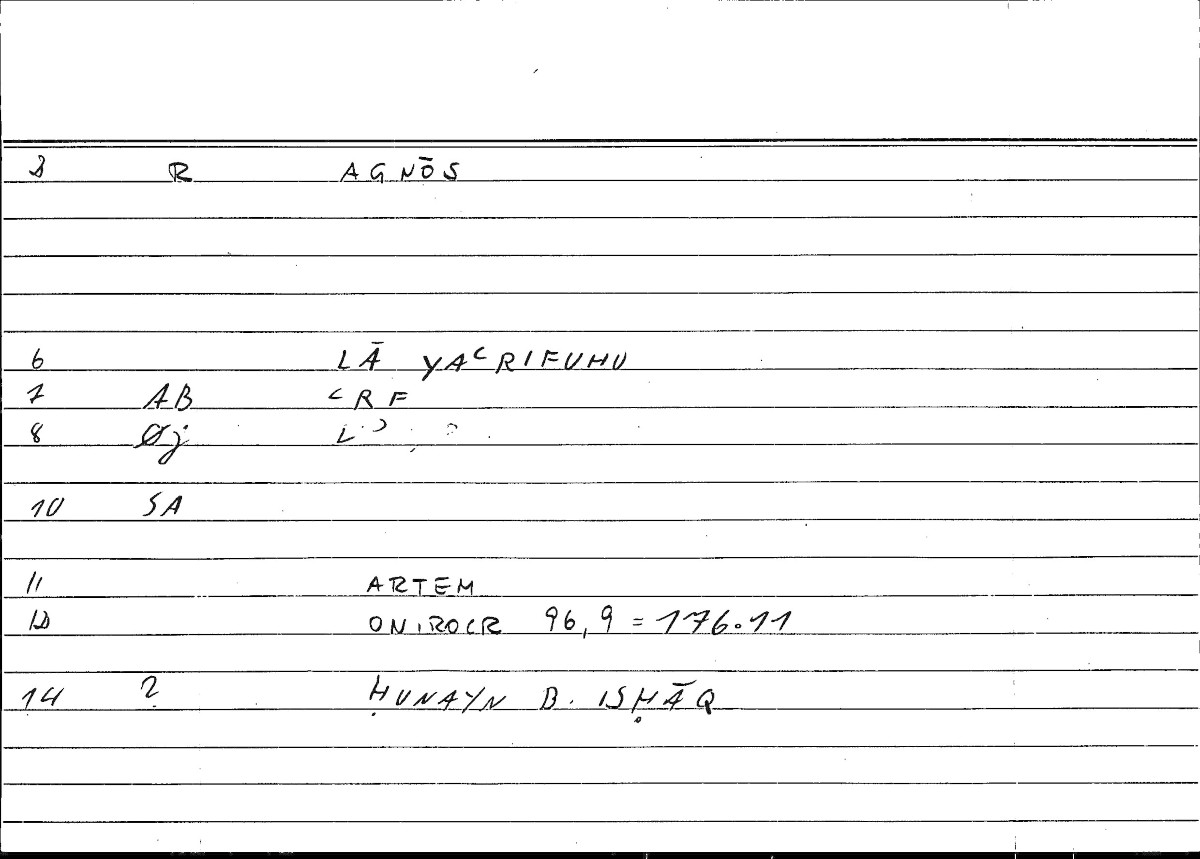 R AGNŌS
6 LĀ YAʿRIFUHU
7 AB ʿRF
8 Øj L
10 SA
11 ARTEM
ONIROCR 96,9 = 176.11
14 2 ḤUNAYN B. ISḤĀQ